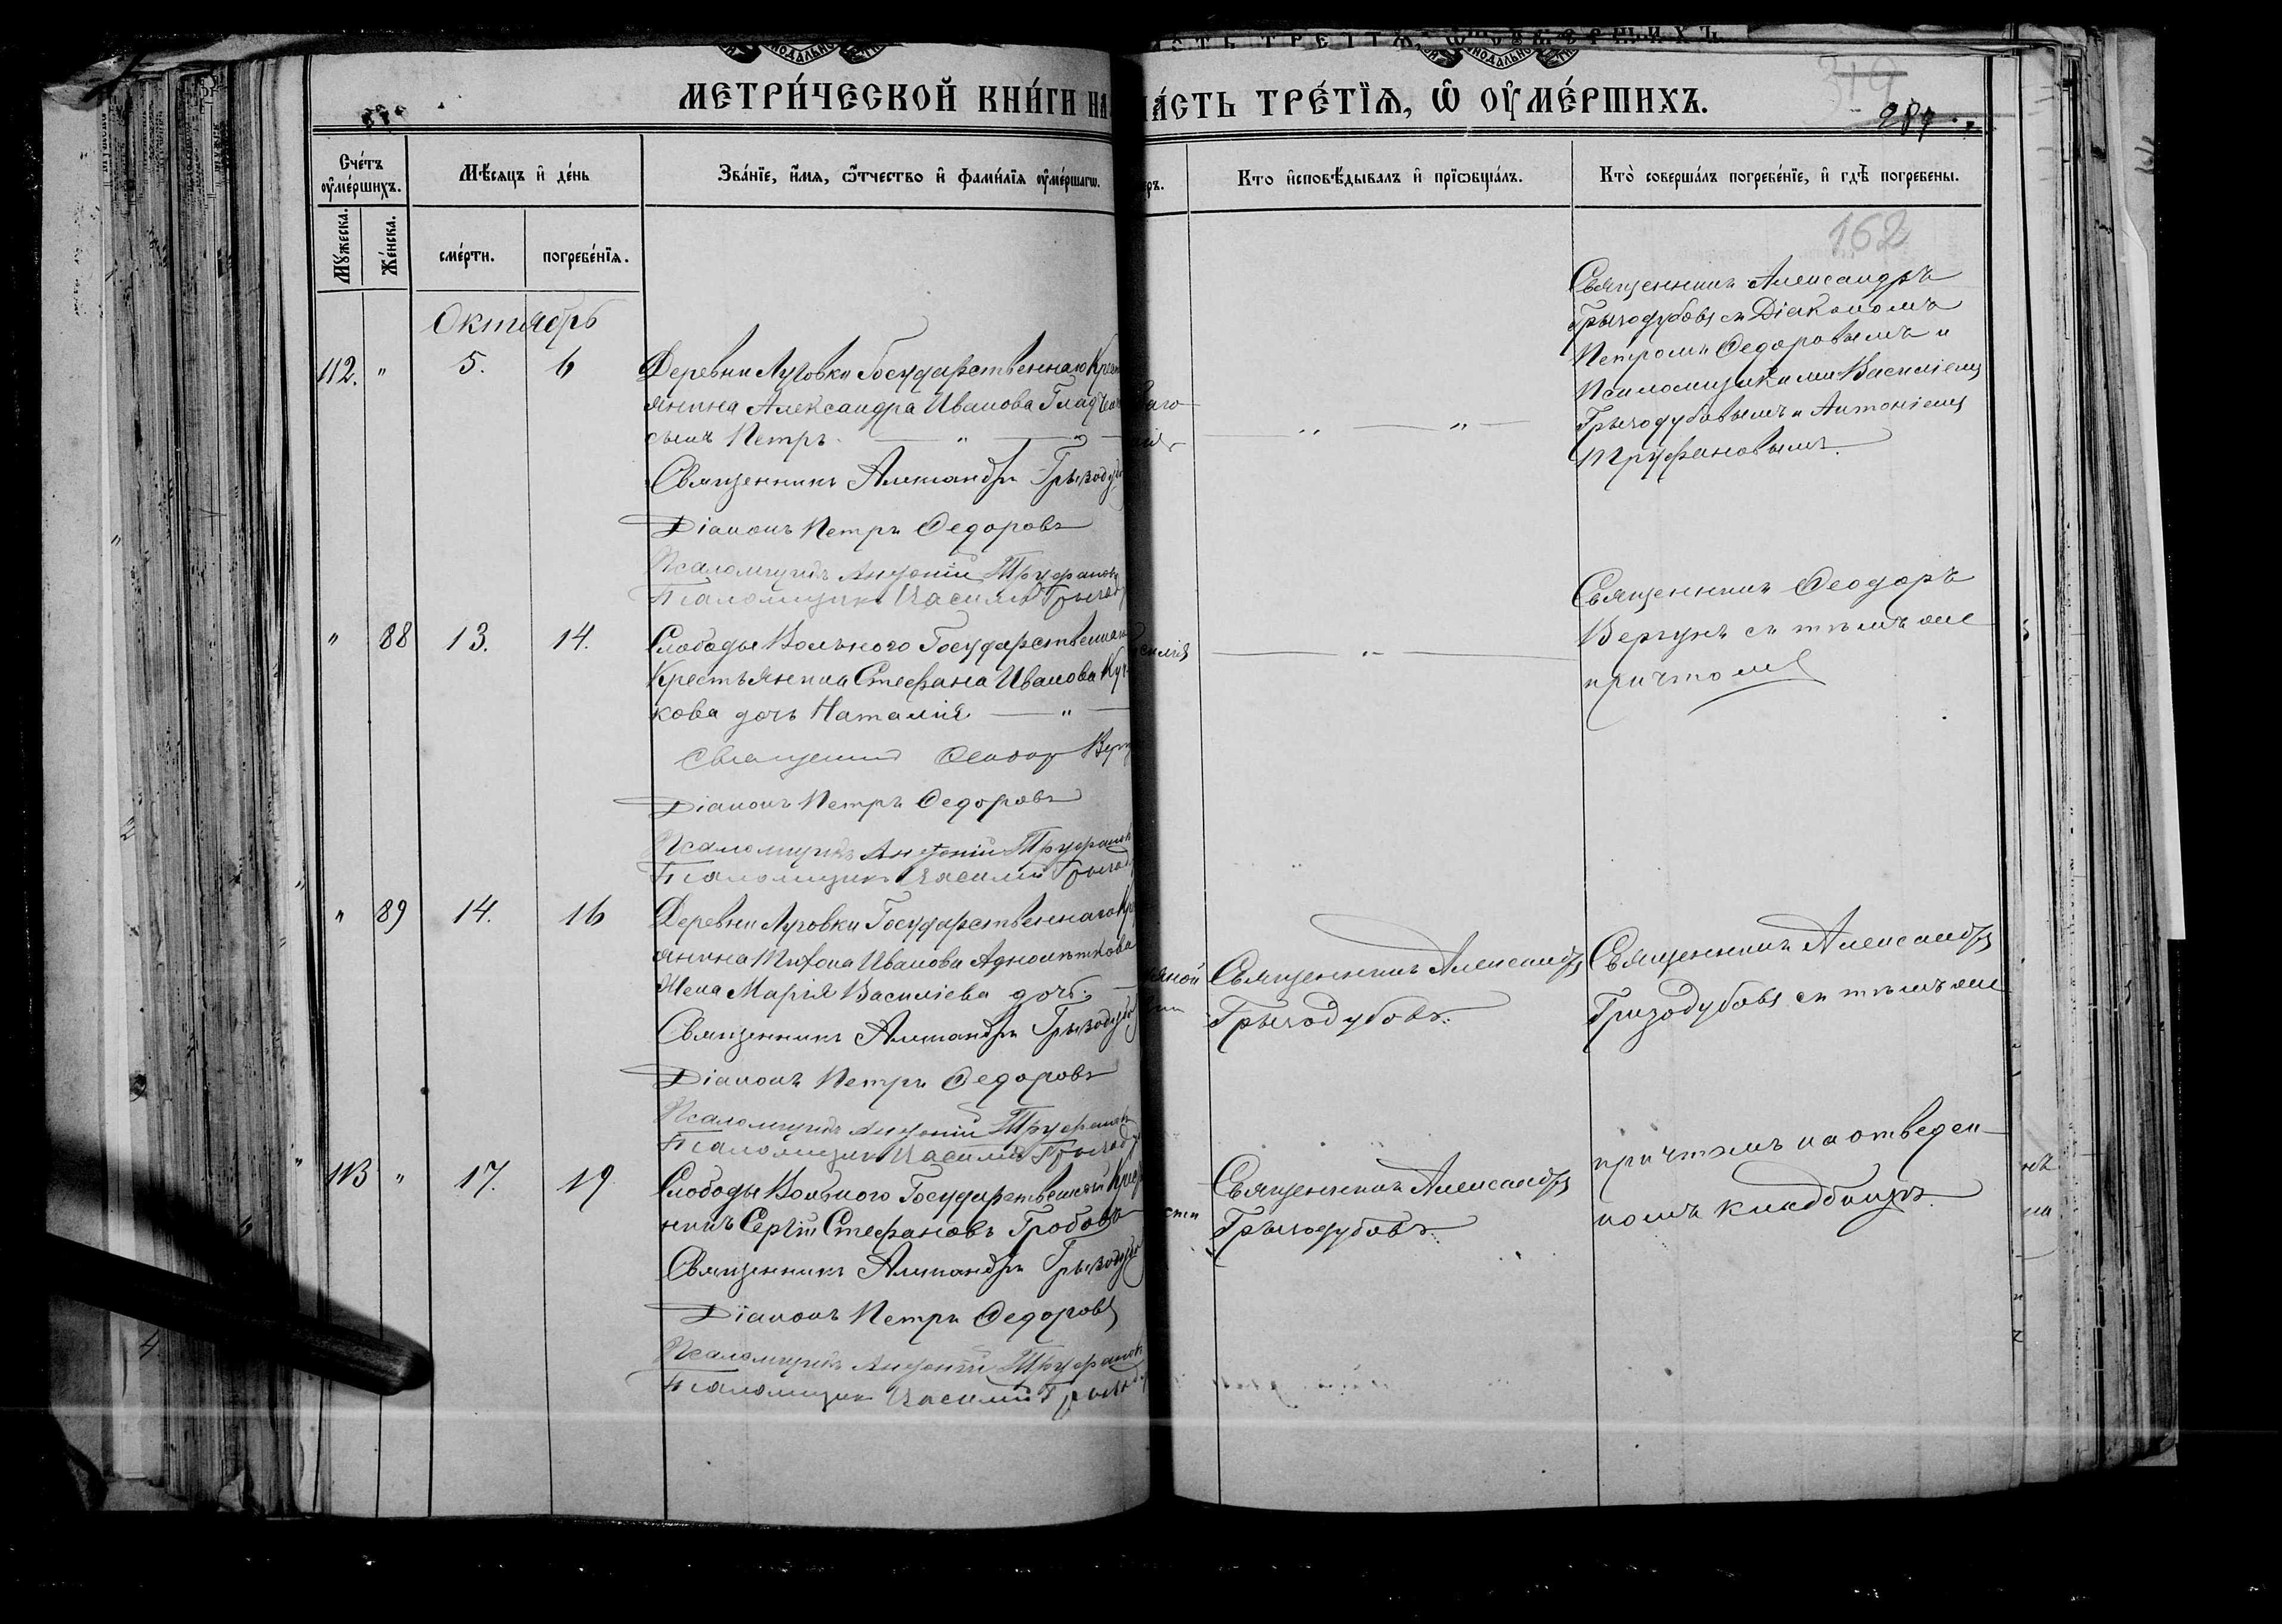 МЕТРИ́ЧЕСКОЙ КНИ́ГИ НА
ЧА́СТЬ ТРЕ́ТЇѦ, Ѽ ОУ҆МЕ́РШИХЪ.
319
287
Сче́тъ
оу҆ме́ршихъ.
Мѣ́сяцъ и҆ де́нь
Зва́нїе, и҆́мя, ѻ҆́тчество и҆ фами́лїя оу҆ме́ршагѡ.
еръ.
Кто и҆сповѣ́дывалъ и҆ прїѡбща́лъ.
Кто̀ соверша́лъ погребе́нїе, и҆ гдѣ̀ погребены.
Мꙋ́жеска.
Же́нска.
сме́рти.
погребе́нїя.
162
Октябрь
112. " 5. 6
Деревни Луговки Государственнаго Крест
янина Александра Иванова
сынъ Петръ
Священникъ Александръ Грызодуб
Діаконъ Петръ Федоровъ
Псаломщикъ Антоній Труфанов
Псаломщикъ Василій Грызод
Священникъ Александръ
Грызодубовъ съ Діакономъ
Петромъ Федоровымъ и
Псаломщиками Василіемъ
Грызодубовымъ и Антоніемъ
Труфановымъ.
" 88 13. 14.
Слободы Вольного Государственнаго
Крестьянина Стефана Иванова Куч
кова дочь Наталія
Священникъ Феодор Верг
Діаконъ Петръ Федоровъ
Псаломщикъ Антоній Труфанов
Псаломщикъ Василій Грызод
Священникъ Феодоръ
Вергунъ съ тѣмъ же
причтомъ
" 89 14. 16
Деревни Луговки Государственнаго Кре
янина Тихона Иванова
Жена Марія Васильева дочь.
Священникъ Александръ Грызодуб
Діаконъ Петръ Федоровъ
Псаломщикъ Антоній Труфанов
Псаломщикъ Василій Грызод
Священникъ Александръ
Грызодубовъ.
Священникъ Александръ
Гризодубовъ съ тѣмъ же
113 " 17. 19
Слободы Вольного Государственный Крест
нинъ Сергій Стефановъ Гробовъ
Священникъ Александръ Грызодуб
Діаконъ Петръ Федоровъ
Псаломщикъ Антоній Труфанов
Псаломщикъ Василій Грызод
Священникъ Александръ
Грызодубовъ.
причтомъ на отведен
номъ кладбищѣ.